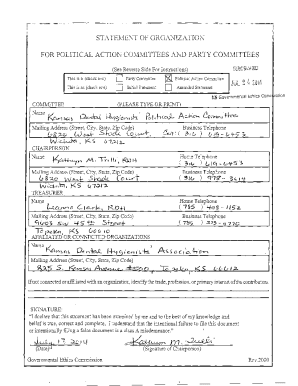 STATEMENT OF ORGANIZATION
FOR POLITICAL ACTION COMMITTEES AND PARTY COMMITTEES
(See Reverse Side For Instructions)
This is a (check one): Party Committee Political Action Committee
This is an (check one): Initial Statement Amended Statement
KS Governmental Ethics Commission
COMMITTEE (PLEASE TYPE OR PRINT)
Name
Kansas Dental Hygienists' Political Action Committee
Mailing Address (Street, City, State, Zip Code) Business Telephone
6820 West Shade Court, (316) 619-6453
Wichita, KS 67212
CHAIRPERSON
Name Home Telephone
Kathryn M. Trilli, RDH (316) 619-6453
Mailing Address (Street, City, State, Zip Code) Business Telephone
6820 West Shade Court (316)
Wichita, KS 67212
TREASURER
Name Home Telephone
RDH (785)
Mailing Address (Street, City, State, Zip Code) Business Telephone
SW 45th Street (785)
Topeka, KS 66610
AFFILIATED OR CONNECTED ORGANIZATIONS
Name
Kansas Dental Hygienists' Association
Mailing Address (Street, City, State, Zip Code)
825 S. Kansas Avenue #500, Topeka, KS 66612
If not connected or affiliated with an organization, identify the trade, profession, or primary interest of the contributors.
SIGNATURE:
"I declare that this statement has been examined by me and to the best of my knowledge and
belief is true, correct and complete. I understand that the intentional failure to file this document
or intentionally filing a false document is a class A misdemeanor."
July 17, 2014 Kathryn M. Trilli
(Date) (Signature of Chairperson)
Governmental Ethics Commission Rev.2000